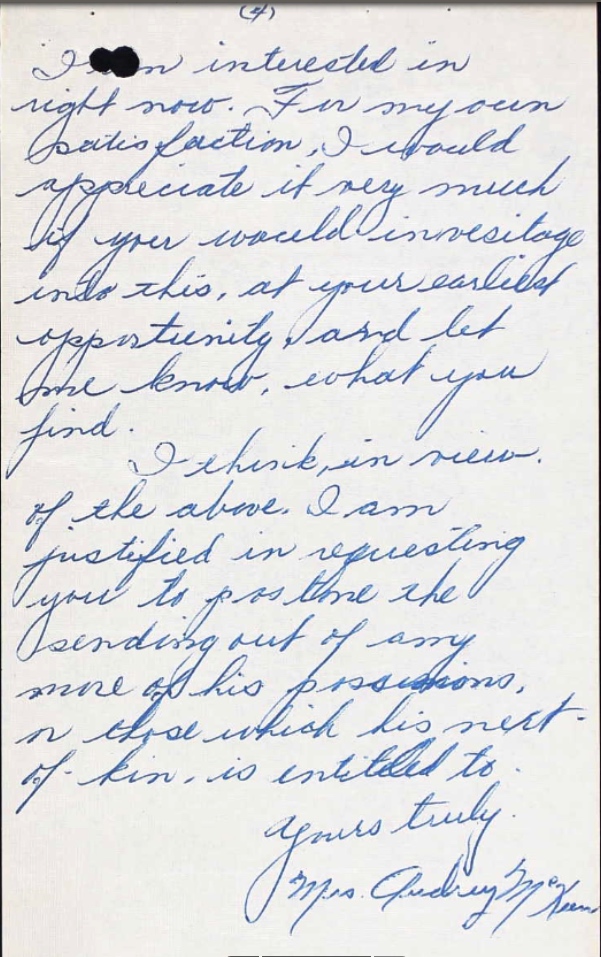 (4)
I am interested in
right now. For my own
satisfaction, I would
appreciate it very much
if you would invesitage
into this, at your earliest
opportunity, and let
me know, what you
find.
I think, in view.
of the above. I am
justified in requesting
you to postone the
sending out of any
more of his possessions,
or those which his next-
of-kin. is entitled to.
Yours truly.
Mrs. Audrey